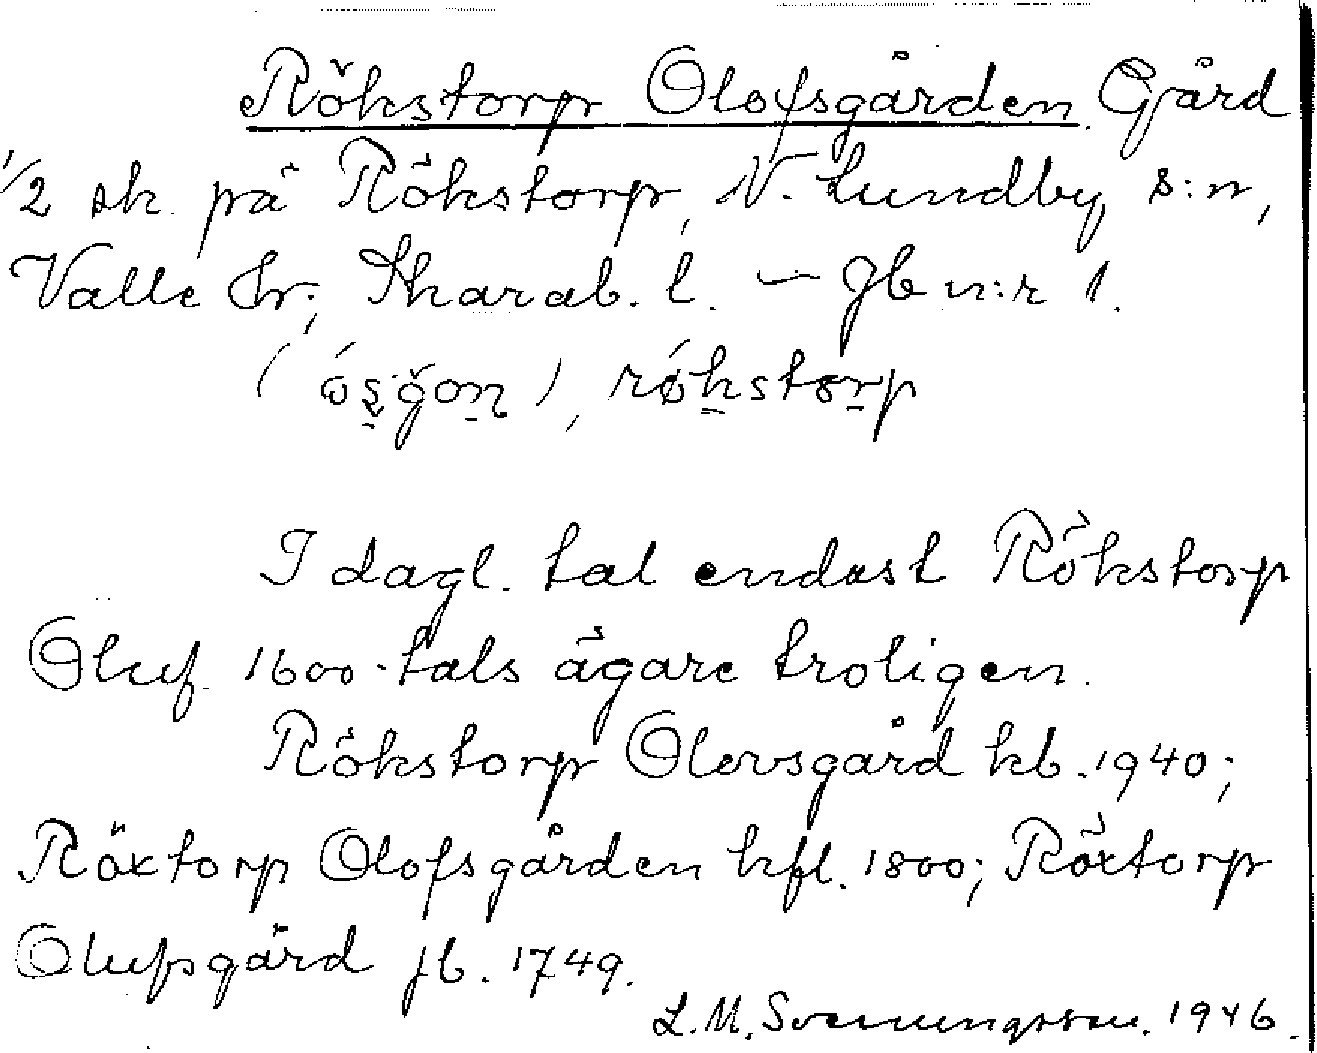 Rökstorp Olofsgården Gård
1/2 sk. på Rökstorp, N. Lundby s:n,
Valle hr; Skarab. l. — Jb n:r 1.
(ósgon), rökstorp
I dagl. tal endast Rökstorp
Oluf 1600-tals ägare troligen.
Rökstorp Olovsgård kb. 1940;
Röxtorp Olofsgården hfl. 1800; Röxtorp
Olufsgård jb. 1749.
L. M. Svenungsson. 1946.